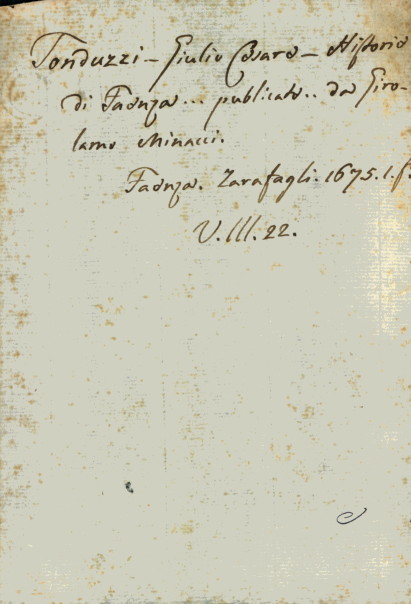 Tonduzzi - Giulio Cesare - Historie
di Faenza... publicate.. da Giro-
lamo Minacci.
Faenza. Zarafagli. 1675. 1. f.
V. III. 22.